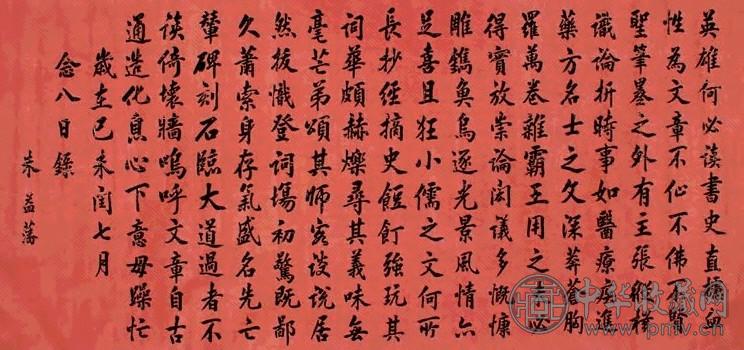 英雄何必讀書史直攄血
性為文章不仙不佛不賢
聖筆墨之外有主張縱橫
議論析時事如醫療疾進
藥方名士之文深莽蒼胸
羅萬卷雜霸王用之未必
得實效崇論閎議多慨慷
雕鐫魚鳥逐光景風情亦
足喜且狂小儒之文何所
長抄經摘史餖飣強玩其
詞華頗赫爍尋其義味無
毫芒弟頌其師客談說居
然拔幟登詞場初驚既鄙
久蕭索身存氣盛名先亡
輦碑刻石臨大道過者不
讀倚壞牆嗚呼文章自古
通造化息心下意毋躁忙
歲在己未閏七月
念八日錄
朱益藩
中华收藏网
www.pmv.cn